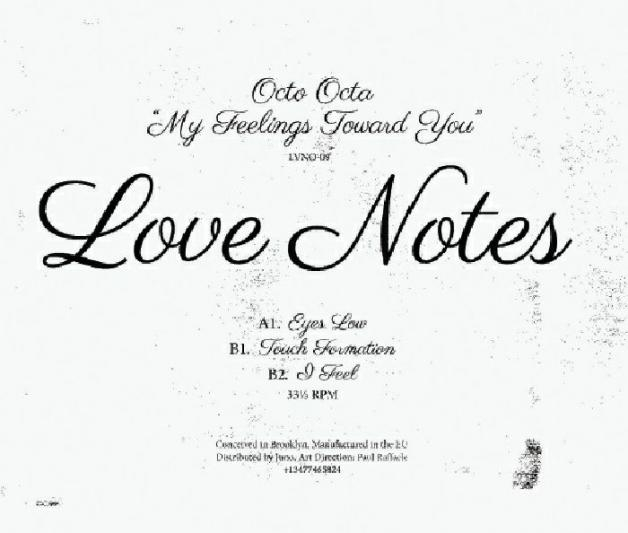 Octo Octa
“My Feelings Toward You”
LVNO-09
Love Notes
A1. Eyes Low
B1. Touch Formation
B2. I Feel
33⅓ RPM
Conceived in Brooklyn, Manufactured in the EU
Distributed by Juno. Art Direction: Paul Raffaele
+13477465824